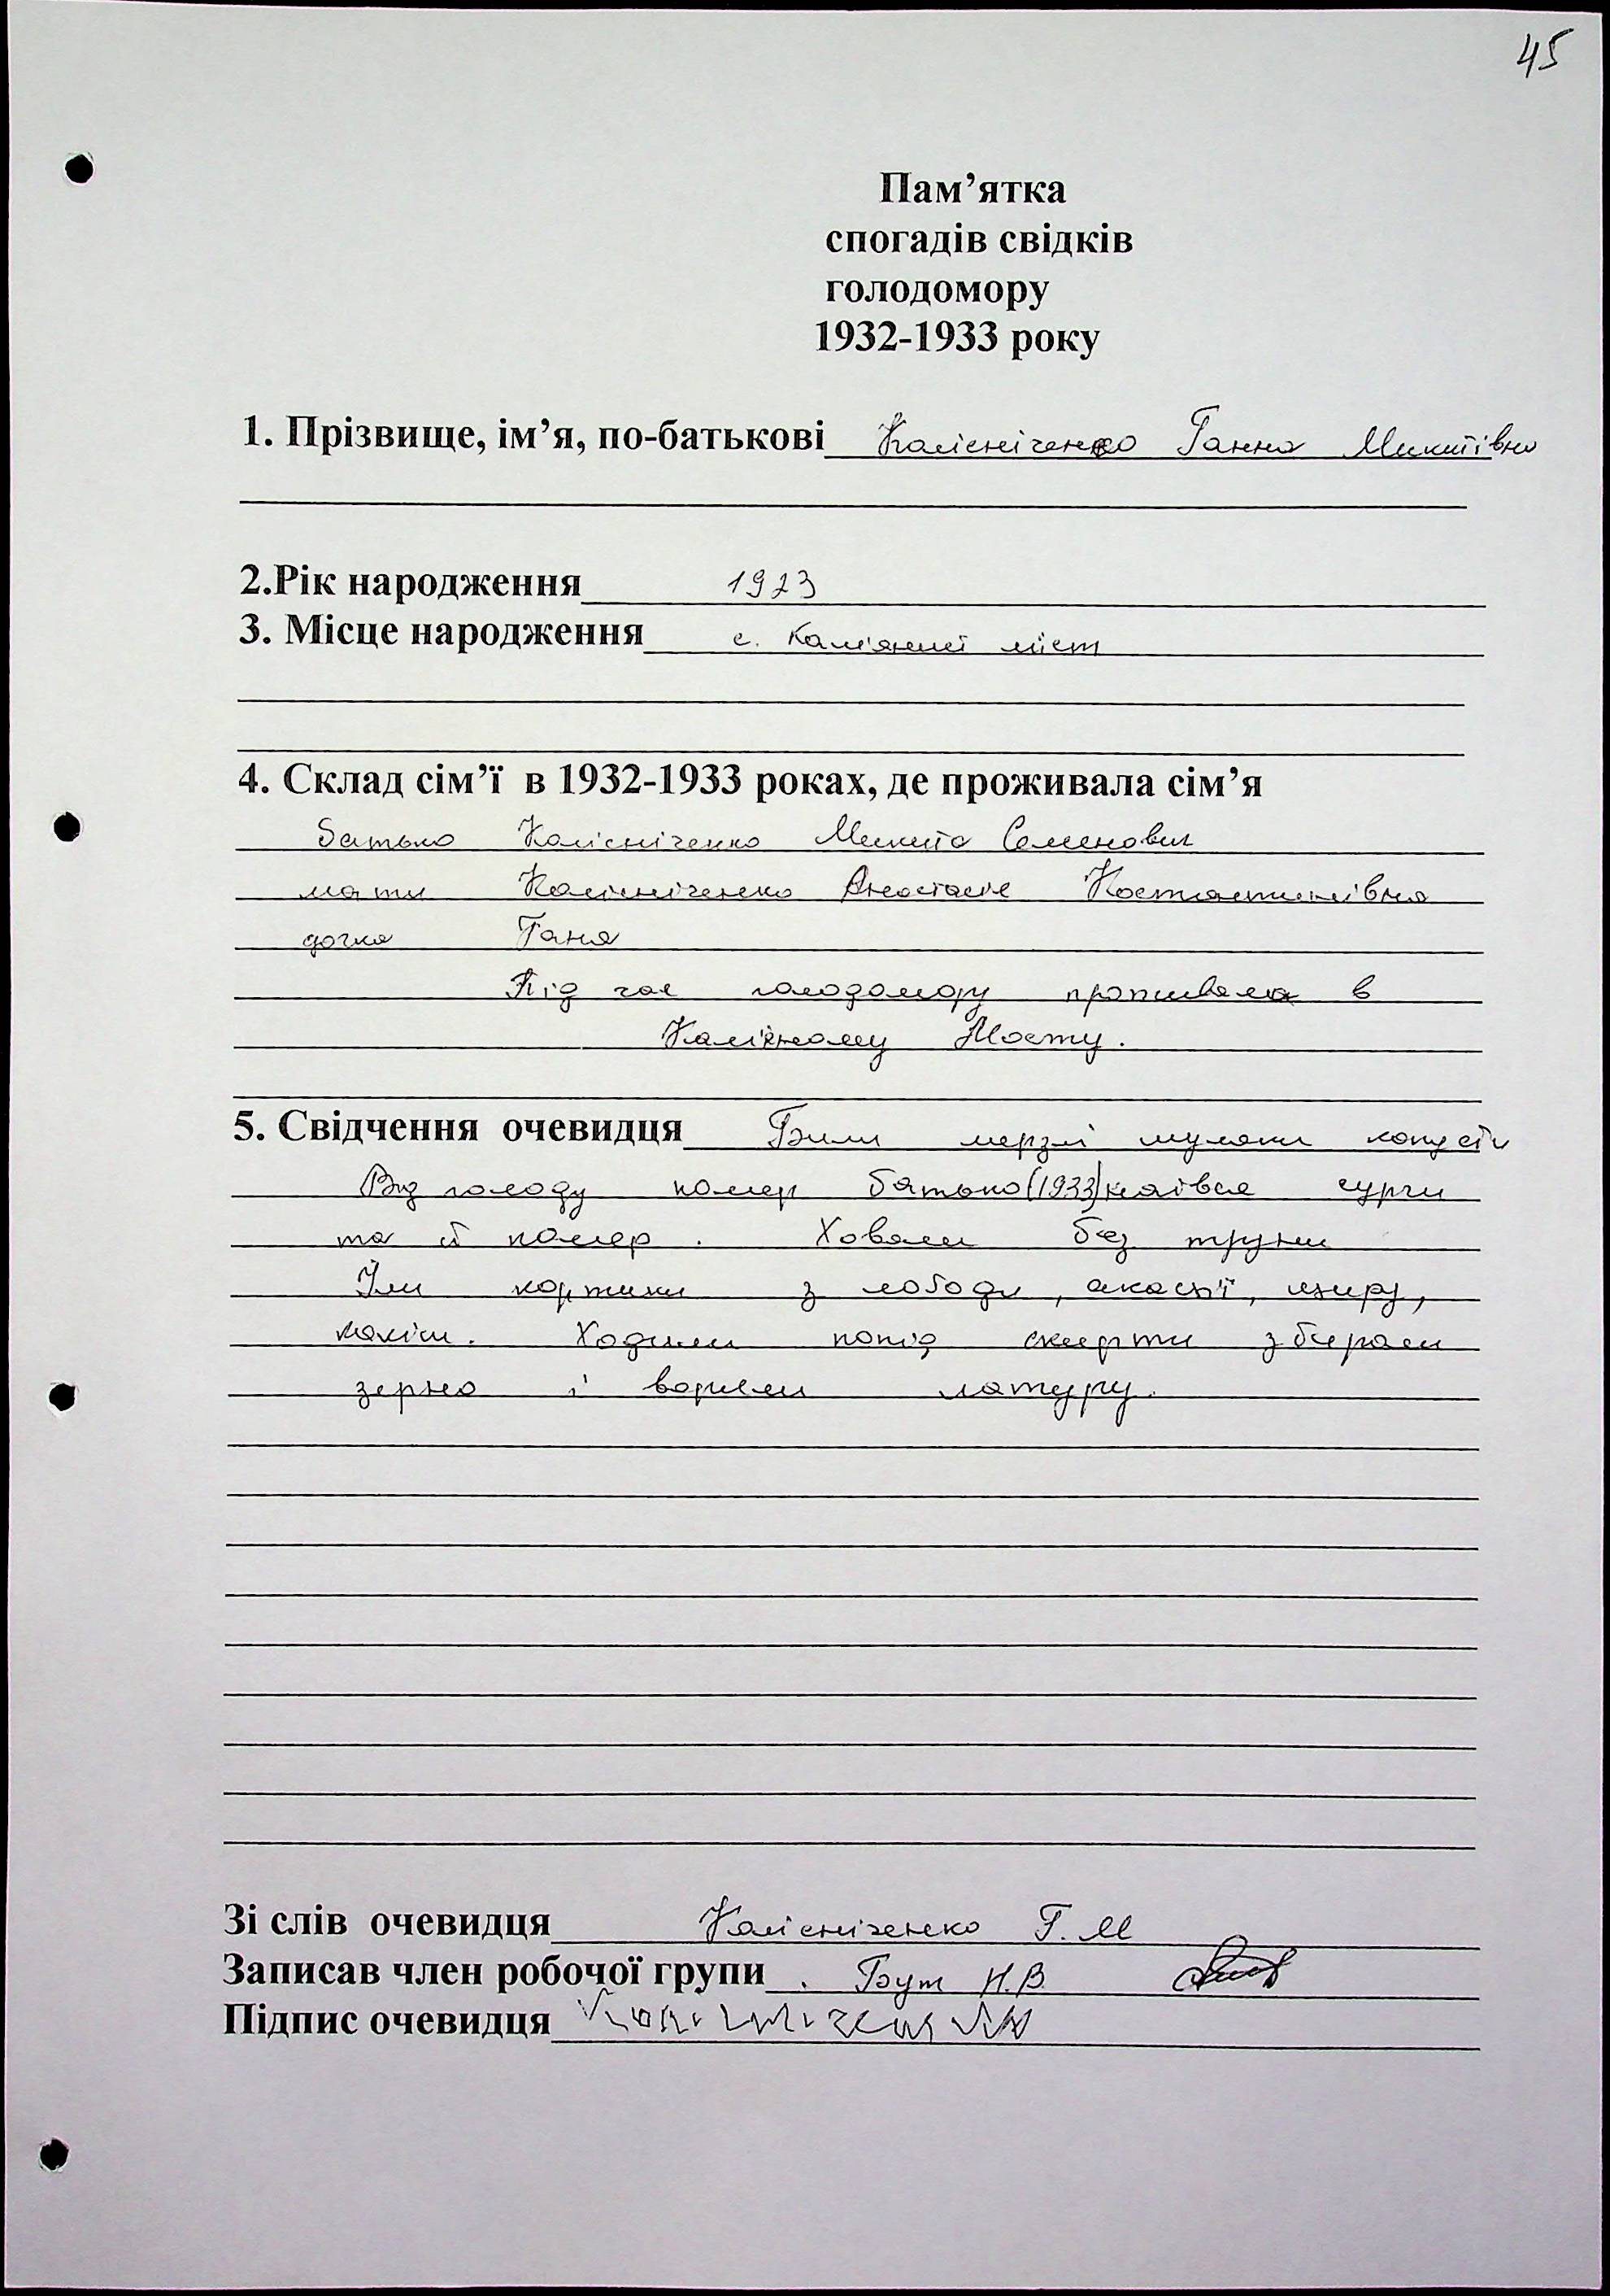 45
Пам’ятка
спогадів свідків
голодомору
1932-1933 року
1. Прізвище, ім’я, по-батькові Калісніченко Ганна Микитівна
2.Рік народження 1923
3. Місце народження с. Кам'яний міст
4. Склад сім’ї в 1932-1933 роках, де проживала сім’я
батько Калісніченко Микита Семенович
мати Калісніченко Анастасія Костянтинівна
дочка Ганя
Під час голодомору проживала в
Кам'яному Мосту.
5. Свідчення очевидця Били мерзлі шуляки капусти
Від голоду помер батько (1933) наївся
та й помер. Ховали без труни
Їли коржики з лободи, акації, щиру,
калачики. Ходили попід скирти збирали
зерно і варили затірку.
Зі слів очевидця Калісніченко Г. М
Записав член робочої групи Бут Н.В.
Підпис очевидця